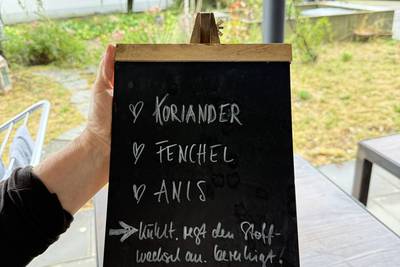 ♡ KORIANDER
♡ FENCHEL
♡ ANIS
→ kühlt. regt den Stoff-
wechsel an. beruhigt!